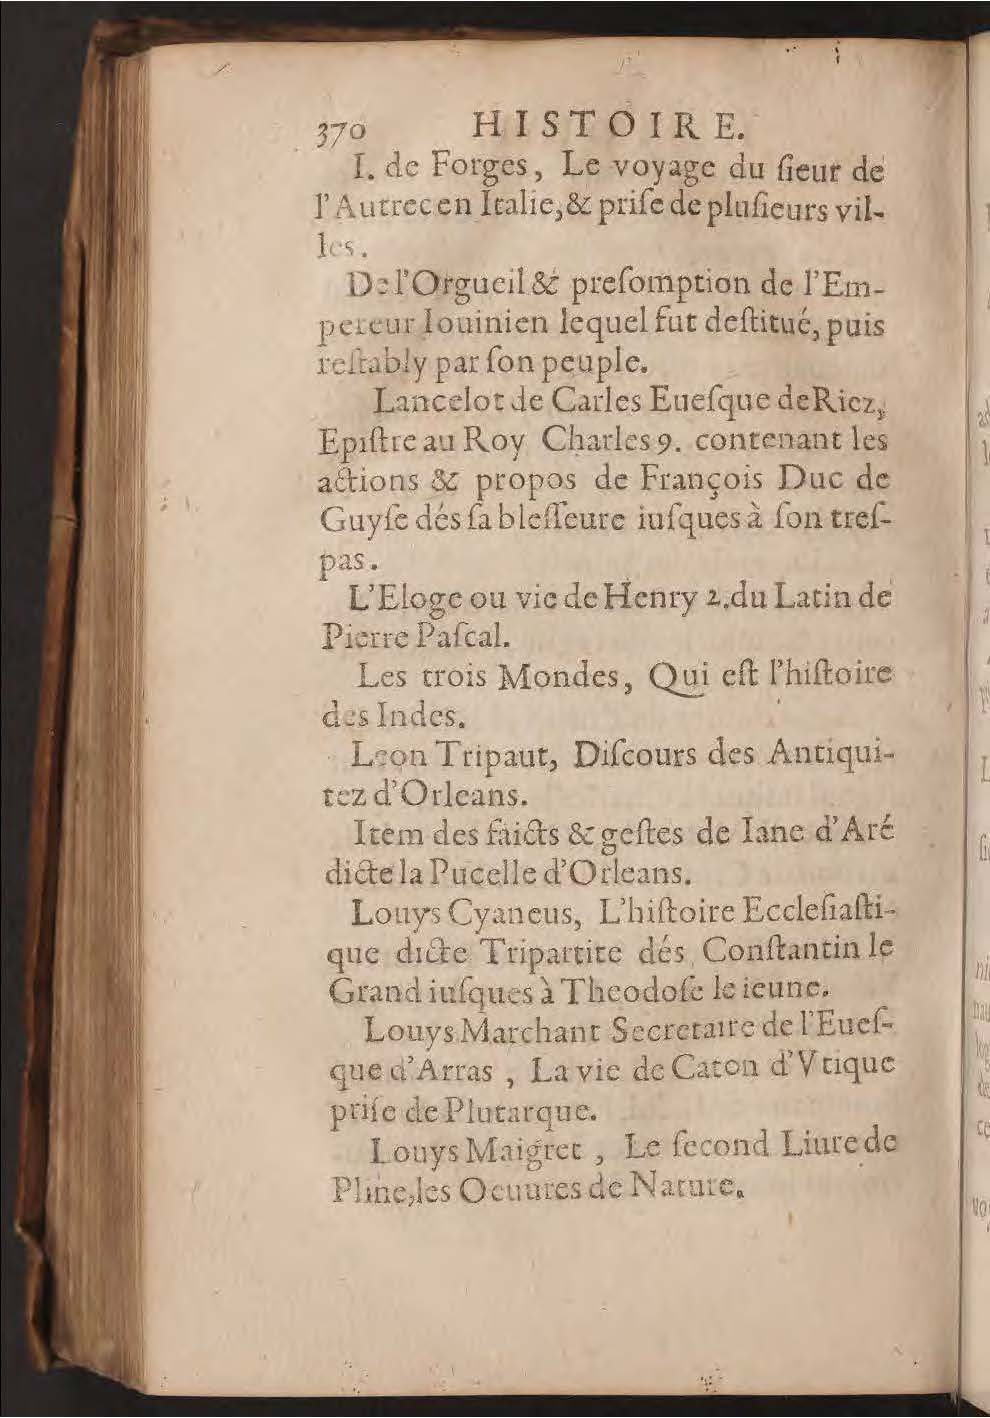 370 HISTOIRE.
I. de Forges, Le voyage du ſieur de
l'Autrec en Italie, & priſe de pluſieurs vil-
les.
De l'Orgueil & preſomption de l'Em-
pereur Iouinien lequel fut deſtitué, puis
reſtably par ſon peuple.
Lancelot de Carles Eueſque de Riez,
Epiſtre au Roy Charles 9. contenant les
actions & propos de François Duc de
Guyſe dés ſa bleſſeure iuſques à ſon treſ-
pas.
L'Eloge ou vie de Henry 2. du Latin de
Pierre Paſcal.
Les trois Mondes, Qui eſt l'hiſtoire
des Indes.
Leon Tripaut, Diſcours des Antiqui-
tez d'Orleans.
Item des faicts & geſtes de Iane d'Aré
dicte la Pucelle d'Orleans.
Louys Cyaneus, L'hiſtoire Eccleſiaſti-
que dicte Tripartite dés Conſtantin le
Grand iuſques à Theodoſe le ieune.
Louys Marchant Secretaire de l'Eueſ-
que d'Arras, La vie de Caton d'Vtique
priſe de Plutarque.
Louys Maigret, Le ſecond Liure de
Pline, les Oeuures de Nature.